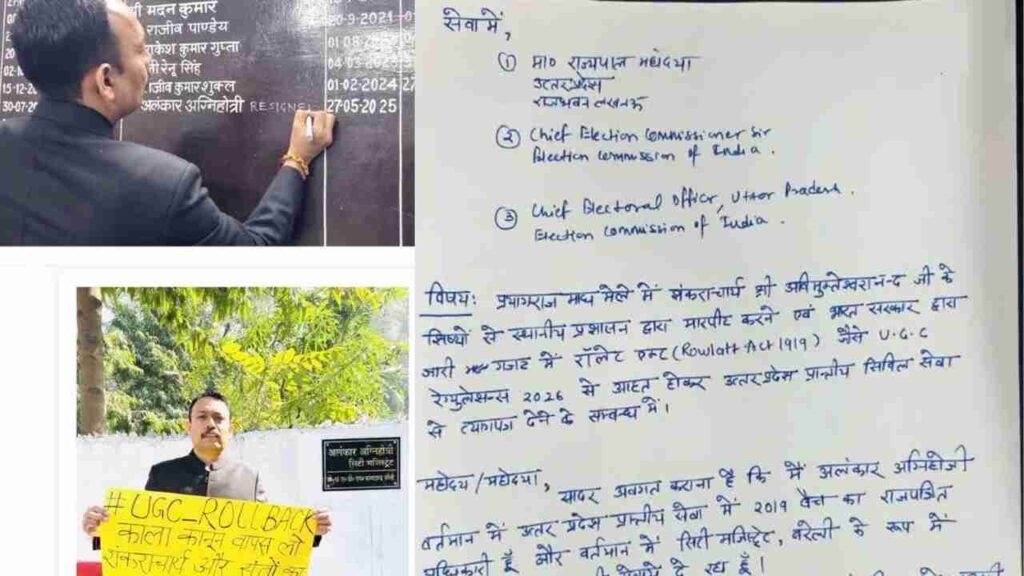 श्री मदन कुमार
राजीव पाण्डेय 20-9-2021
राकेश कुमार गुप्ता 01-08-2023
रेनू सिंह 04-03-2023
15-12-20 राजीव कुमार शुक्ल 01-02-2024 27
30-07-20 अलंकार अग्निहोत्री RESIGNE 27-05-2025
अलंकार अग्निहोत्री
सिटी मजिस्ट्रेट
#UGC_ROLLBACK
काला कानून वापस लो
शंकराचार्य और संतों का
सेवा में,
① मा० राज्यपाल महोदया
उत्तर प्रदेश
राजभवन लखनऊ
② Chief Election Commissioner Sir
Election Commission of India.
③ Chief Electoral Officer, Uttar Pradesh.
Election Commission of India.
विषय: प्रयागराज माघ मेले में शंकराचार्य श्री अविमुक्तेश्वरानन्द जी के
शिष्यों से स्थानीय प्रशासन द्वारा मारपीट करने एवं भारत सरकार द्वारा
जारी गजट में रॉलेट एक्ट (Rowlatt Act 1919) जैसे U.G.C
रेगुलेशन्स 2026 से आहत होकर उत्तर प्रदेश प्रान्तीय सिविल सेवा
से त्यागपत्र देने के सम्बन्ध में।
महोदय/महोदया,
सादर अवगत कराना है कि मैं अलंकार अग्निहोत्री
वर्तमान में उत्तर प्रदेश प्रान्तीय सेवा में 2019 बैच का राजपत्रित
अधिकारी हूँ और वर्तमान में सिटी मजिस्ट्रेट, बरेली के रूप में
दे रहा हूँ।